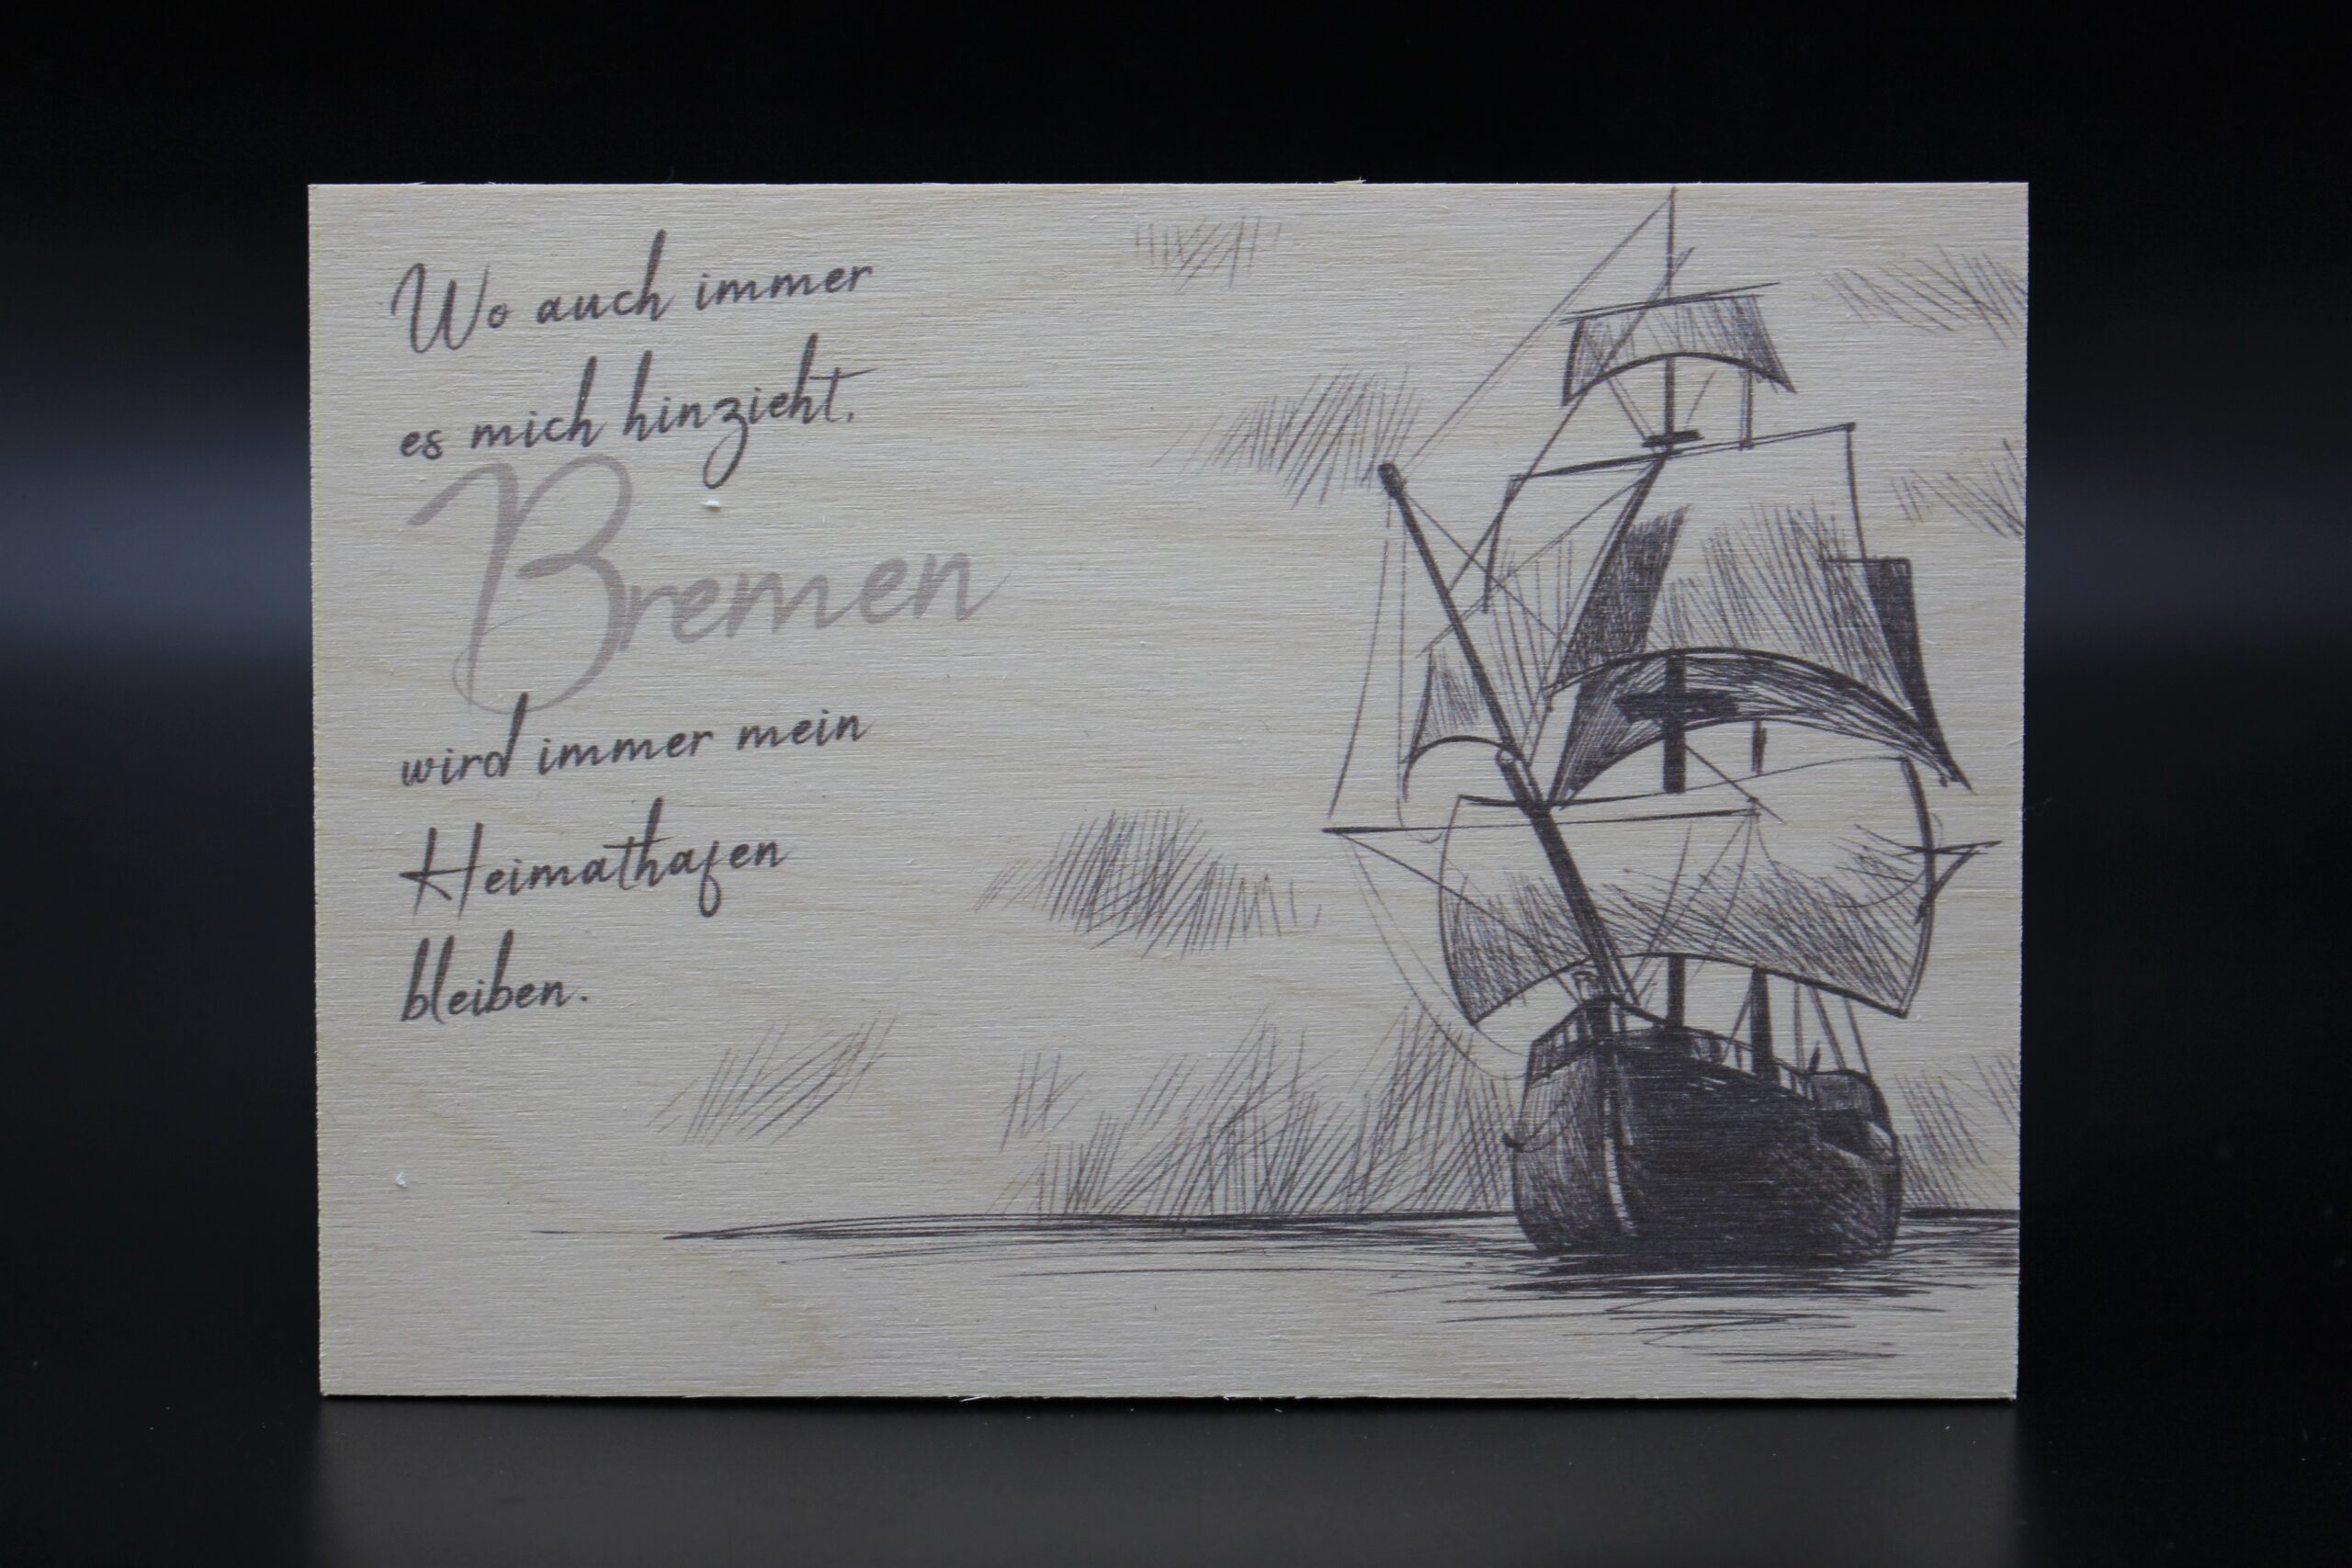 Wo auch immer
es mich hinzieht,
Bremen
wird immer mein
Heimathafen
bleiben.